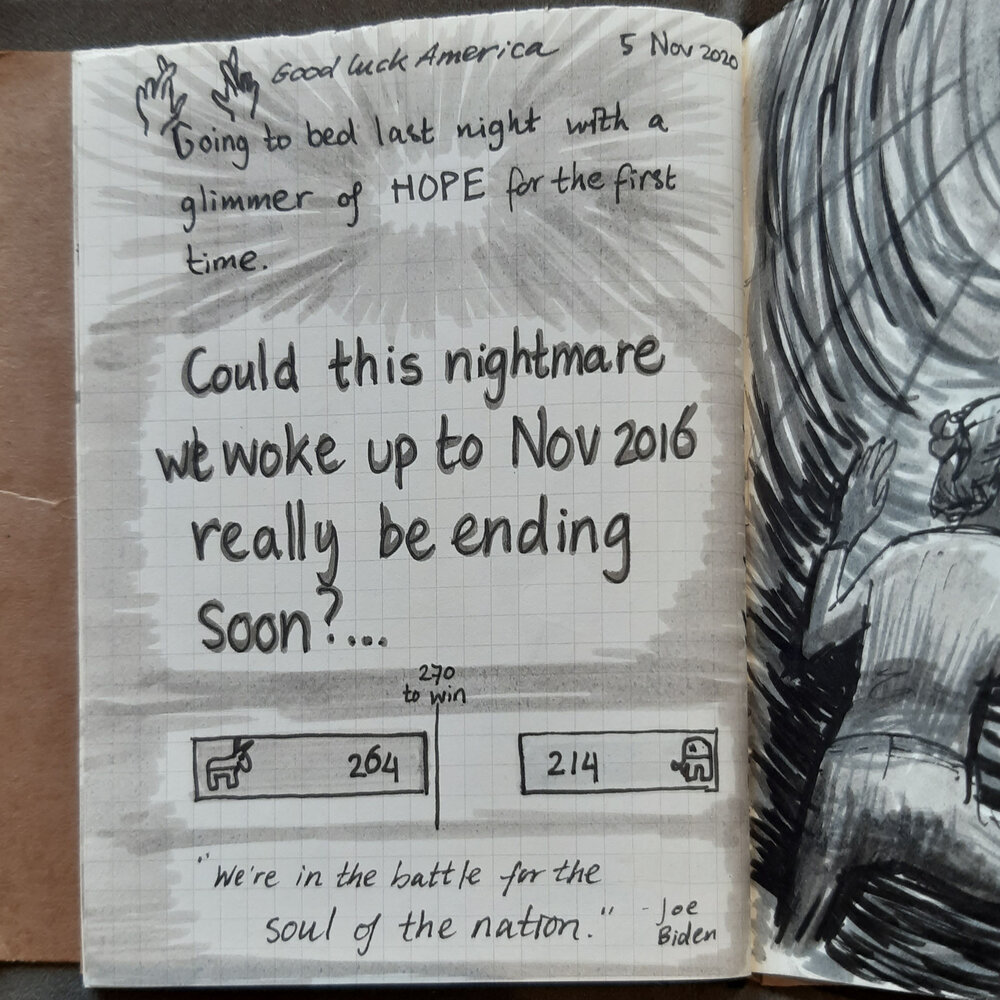 Good Luck America
5 Nov 2020
Going to bed last night with a
glimmer of HOPE for the first
time.
Could this nightmare
we woke up to Nov 2016
really be ending
soon?....
270
to win
264
214
"We're in the battle for the
soul of the nation."
- Joe
Biden